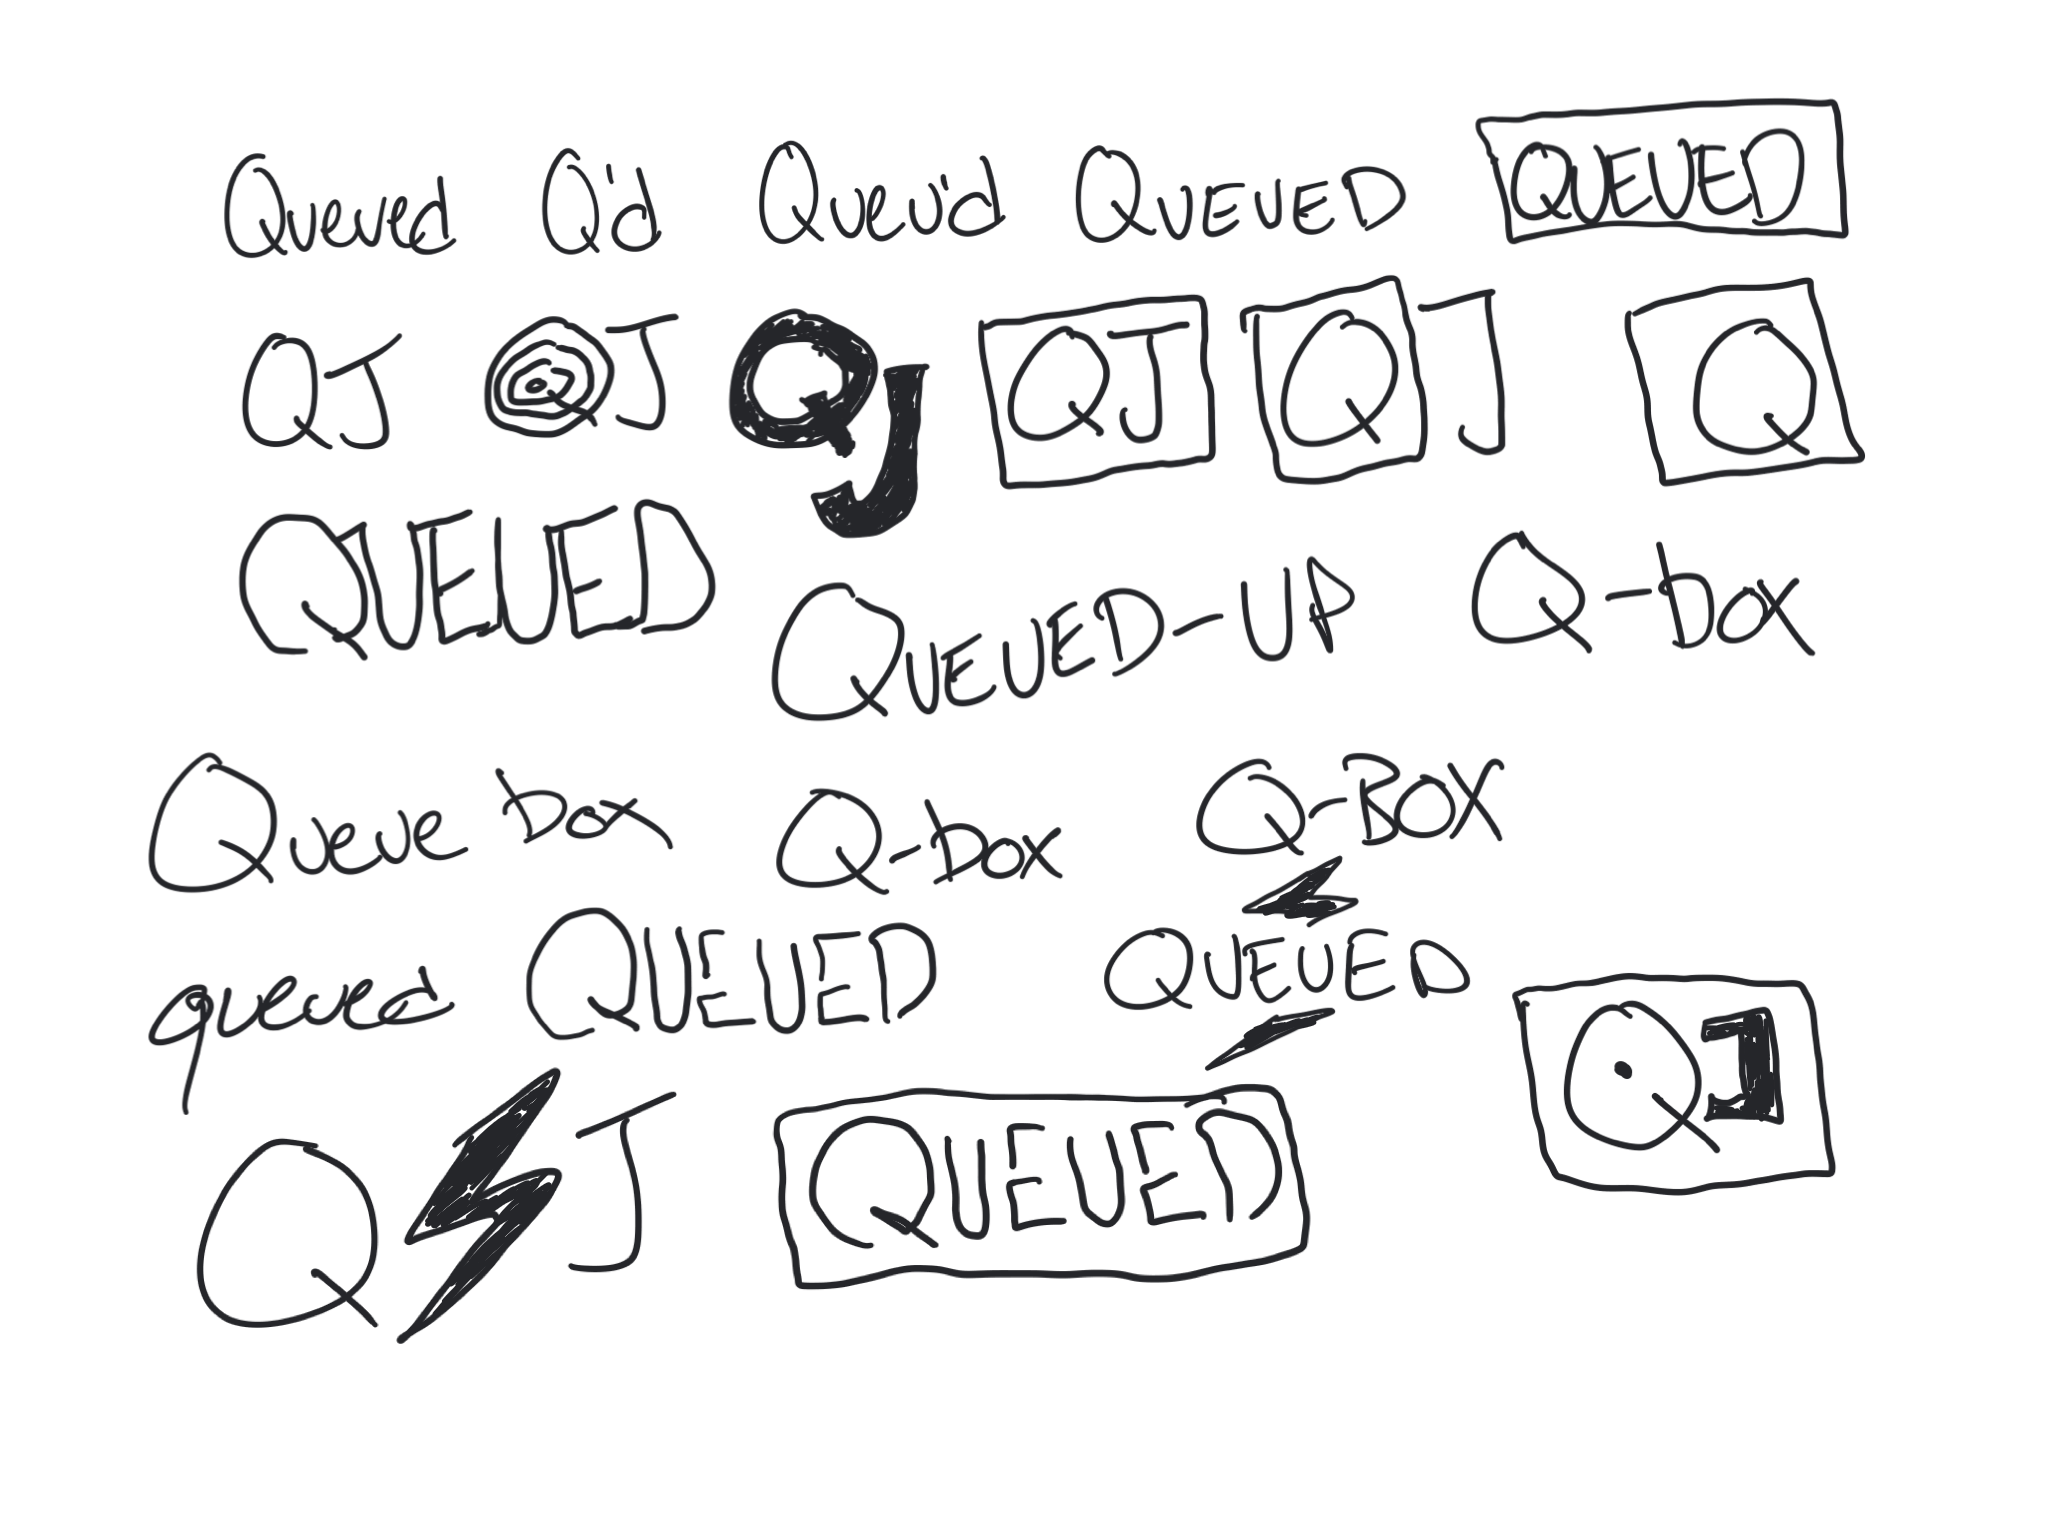 Queued Q'd Queu'd QUEUED QUEUED
QJ QJ QJ QJ QJ Q
QUEUED QUEUED-UP Q-box
Queue box Q-box Q-BOX
queued QUEUED QUEUED
QJ QUEUED QJ